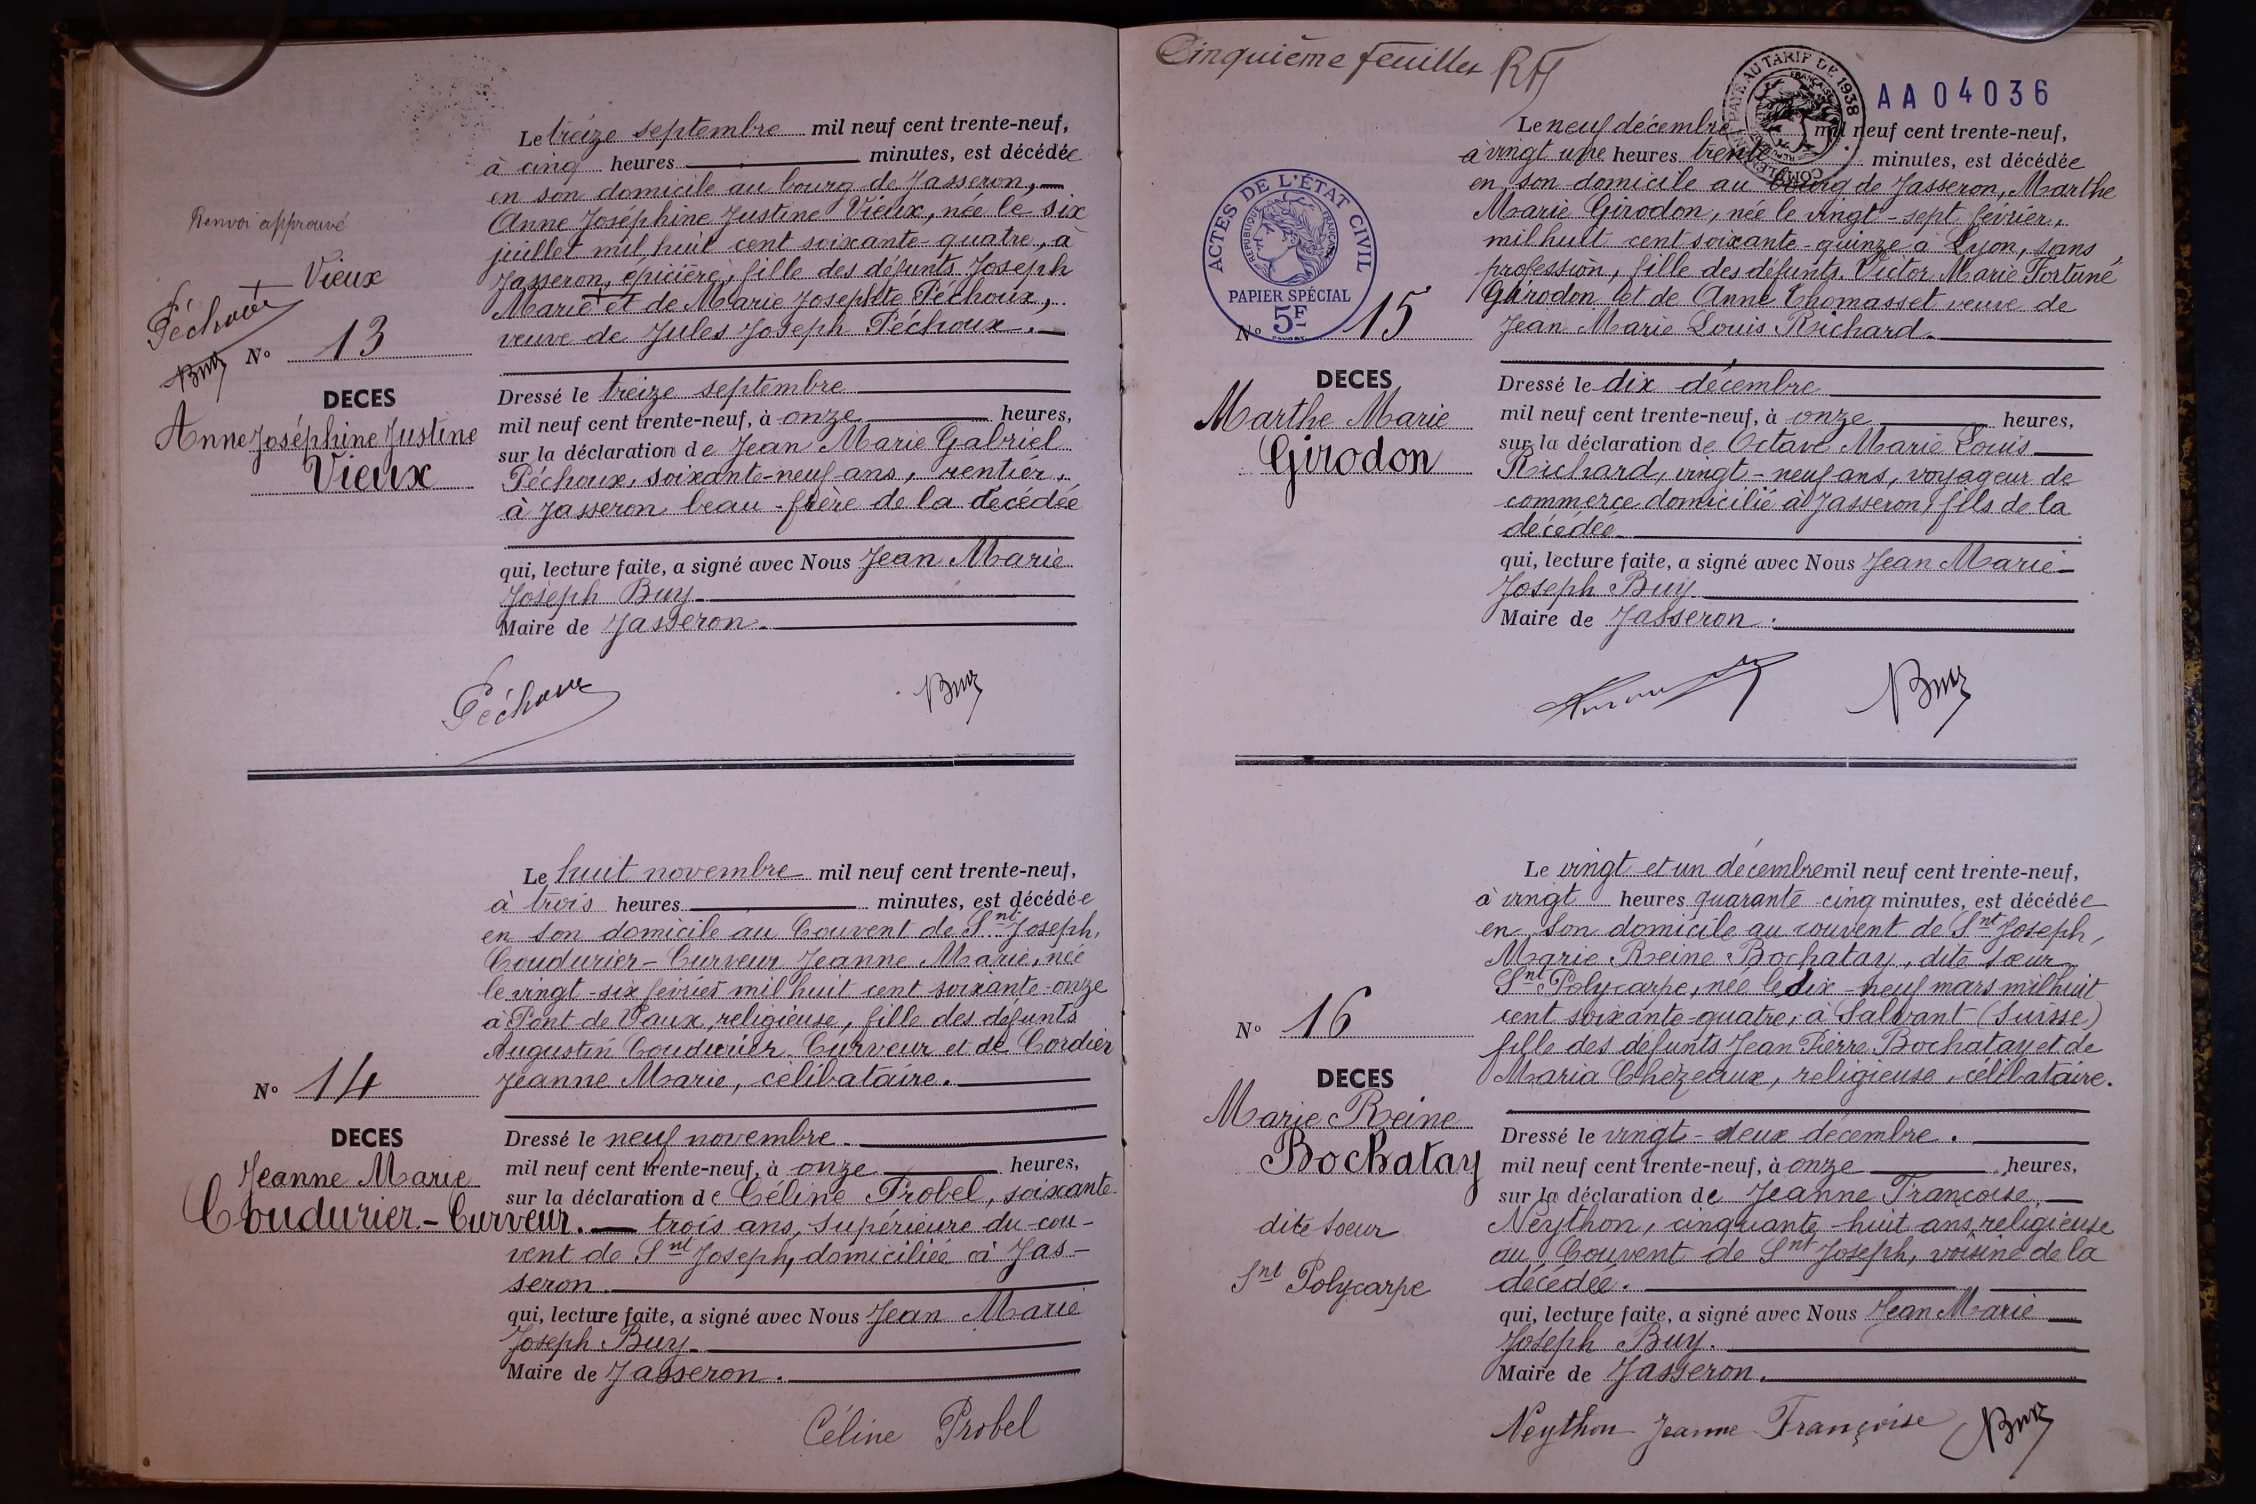 Renvoi approuvé
+ Vieux
Péchoux
Buy
N° 13
DECES
Anne Joséphine Justine
Vieux
Le treize septembre mil neuf cent trente-neuf,
à cinq heures minutes, est décédée
en son domicile au bourg de Jasseron,
Anne Joséphine Justine Vieux, née le six
juillet mil huit cent soixante-quatre, à
Jasseron, épicière, fille des défunts Joseph
Marie + et de Marie Josephte Péchoux,
veuve de Jules Joseph Péchoux.
Dressé le treize septembre
mil neuf cent trente-neuf, à onze heures,
sur la déclaration de Jean Marie Gabriel
Péchoux, soixante-neuf ans, rentier,
à Jasseron beau-frère de la décédée
qui, lecture faite, a signé avec Nous Jean Marie
Joseph Buy
Maire de Jasseron.
Péchoux Buy
N° 14
DECES
Jeanne Marie
Coudurier-Curveur.
Le huit novembre mil neuf cent trente-neuf,
à trois heures minutes, est décédée
en son domicile au Couvent de Snt Joseph,
Coudurier-Curveur Jeanne Marie, née
le vingt-six février mil huit cent soixante-onze
à Pont de Vaux, religieuse, fille des défunts
Augustin Coudurier Curveur et de Cordier
Jeanne Marie, célibataire.
Dressé le neuf novembre.
mil neuf cent trente-neuf, à onze heures,
sur la déclaration de Céline Probel, soixante
trois ans, supérieure du cou-
vent de Snt Joseph, domiciliée à Jas-
seron.
qui, lecture faite, a signé avec Nous Jean Marie
Joseph Buy.
Maire de Jasseron.
Céline Probel
Cinquième feuillet RH
COMPLÉMENT PAYÉ AU TARIF DE 1938
RÉPUBLIQUE FRANÇAISE
AA04036
ACTES DE L'ÉTAT CIVIL
RÉPUBLIQUE FRANÇAISE
PAPIER SPÉCIAL
5F
N° 15
DECES
Marthe Marie
Girodon
Le neuf décembre mil neuf cent trente-neuf,
à vingt une heures trente minutes, est décédée
en son domicile au bourg de Jasseron, Marthe
Marie Girodon, née le vingt-sept février,
mil huit cent soixante-quinze à Lyon, sans
profession, fille des défunts Victor Marie Fortuné
Girodon et de Anne Thomasset veuve de
Jean Marie Louis Richard.
Dressé le dix décembre
mil neuf cent trente-neuf, à onze heures,
sur la déclaration de Octave Marie Louis
Richard, vingt-neuf ans, voyageur de
commerce domicilié à Jasseron, fils de la
décédée
qui, lecture faite, a signé avec Nous Jean Marie
Joseph Buy
Maire de Jasseron.
Buy
N° 16
DECES
Marie Reine
Bochatay
dite soeur
Snt Polycarpe
Le vingt et un décembre mil neuf cent trente-neuf,
à vingt heures quarante-cinq minutes, est décédée
en son domicile au couvent de Snt Joseph,
Marie Reine Bochatay, dite soeur
Snt Polycarpe, née le dix-neuf mars mil huit
cent soixante-quatre, à Salvant (Suisse)
fille des défunts Jean Pierre Bochatay et de
Maria Chezeaux, religieuse, célibataire.
Dressé le vingt-deux décembre.
mil neuf cent trente-neuf, à onze heures,
sur la déclaration de Jeanne Françoise
Neython, cinquante-huit ans, religieuse
au Couvent de Snt Joseph, voisine de la
décédée.
qui, lecture faite, a signé avec Nous Jean Marie
Joseph Buy.
Maire de Jasseron.
Neython Jeanne Françoise Buy